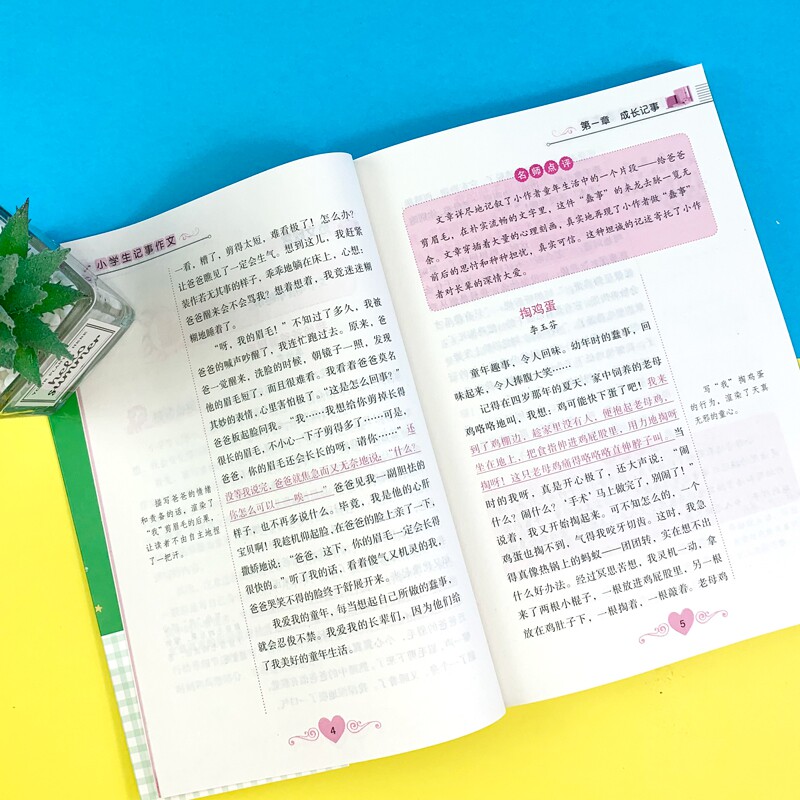 小学生记事作文
一看，糟了，剪得太短，难看极了！怎么办？
让爸爸瞧见了一定会生气。想到这儿，我赶紧
装作若无其事的样子，乖乖地躺在床上，心想：
爸爸醒来会不会骂我？想着想着，我竟迷迷糊
糊地睡着了。
“呀，我的眉毛！”不知过了多久，我被
爸爸的喊声吵醒了，我连忙跑过去。原来，爸
爸一觉醒来，洗脸的时候，朝镜子一照，发现
他的眉毛短了，而且很难看。我看着爸爸莫名
其妙的表情，心里害怕极了。“这是怎么回事？”
爸爸板起脸问我。“我……我想给你剪掉长得
很长的眉毛，不小心一下子剪得多了……可是，
爸爸，你的眉毛还会长长的呀，请你……”还
没等我说完，爸爸就焦急而又无奈地说：“什么？
你怎么可以——唉——”爸爸见我一副胆怯的
样子，也不再多说什么。毕竟，我是他的心肝
宝贝啊！我趁机仰起脸，在爸爸的脸上亲了一下，
撒娇地说：“爸爸，这下，你的眉毛一定会长得
很快的。”听了我的话，看着傻气又机灵的我，
爸爸哭笑不得的脸终于舒展开来。
我爱我的童年，每当想起自己所做的蠢事，
就会忍俊不禁。我爱我的长辈们，因为他们给
了我美好的童年生活。
描写爸爸的情绪
和责备的话，渲染了
“我”剪眉毛的后果，
让读者不由自主地捏
了一把汗。
4
第一章 成长记事
名师点评
文章详尽地记叙了小作者童年生活中的一个片段——给爸爸
剪眉毛，在朴实流畅的文字里，这件“蠢事”的来龙去脉一览无
余。文章穿插着大量的心理刻画，真实地再现了小作者做“蠢事”
前后的思忖和种种担忧，真实可信。这种坦诚的记述寄托了小作
者对长辈的深情大爱。
掏鸡蛋
李玉芬
童年趣事，令人回味。幼年时的蠢事，回
味起来，令人捧腹大笑……
记得在四岁那年的夏天，家中饲养的老母
鸡咯咯地叫，我想：鸡可能快下蛋了吧！我来
到了鸡棚边，趁家里没有人，便抱起老母鸡，
坐在地上，把食指伸进鸡屁股里，用力地掏呀
掏呀！这只老母鸡痛得咯咯咯直伸脖子叫。当
时的我呀，真是开心极了，还大声说：“闹
什么？闹什么？‘手术’马上做完了，别闹了！”
说着，我又开始掏起来。可不知怎么的，一个
鸡蛋也掏不到，气得我咬牙切齿。这时，我急
得真像热锅上的蚂蚁——团团转，实在想不出
什么好办法。经过冥思苦想，我灵机一动，拿
来了两根小棍子，一根放进鸡屁股里，另一根
放在鸡肚子下，一根掏着，一根敲着。老母鸡
写“我”掏鸡蛋
的行为，渲染了天真
无邪的童心。
5